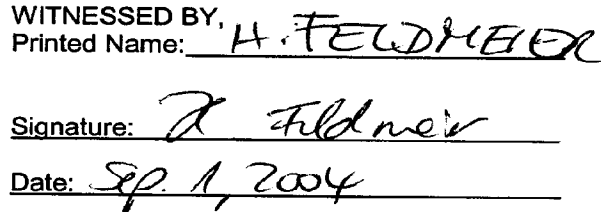 WITNESSED BY,
Printed Name: H. FELDMEIER
Signature: H Feldmeier
Date: Sep. 1, 2004